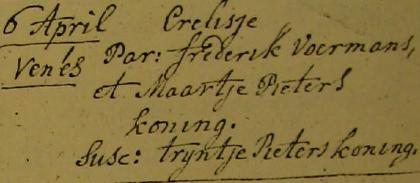 6 April Crelisje
Venes Par: frederik Voermans,
et Maartje Pieters
koning.
Susc: tryntje Pieters koning.